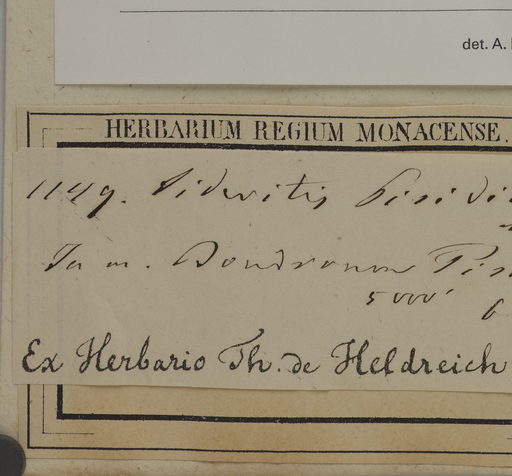 det. A.
HERBARIUM REGIUM MONACENSE.
1149. Sideritis Pisidi
In m. Dondronon Pis
5000' 6
Ex Herbario Th. de Heldreich